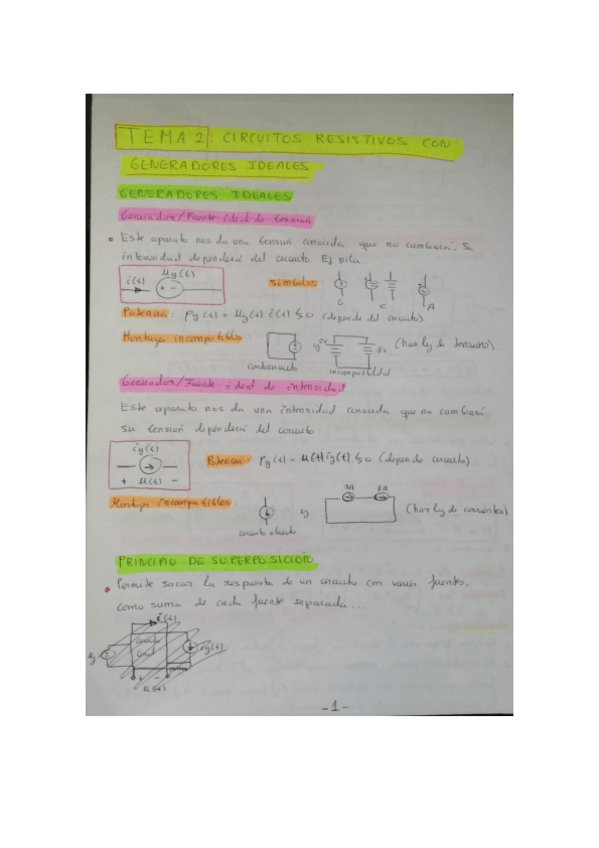 TEMA 2: CIRCUITOS RESISTIVOS CON
GENERADORES IDEALES
GENERADORES IDEALES
Generador/Fuente ideal de tensión
Este aparato nos da una tensión conocida que no cambiará. Su
intensidad dependerá del circuito. Ej pila.
ug(t)
i(t)
+ -
Símbolos
C
C
A
Potencia: Pg(t) = ug(t) i(t) ≶ 0 (depende del circuito)
Montajes incompatibles:
cortocircuito
incompatibilidad
(por ley de tensiones).
Generador/Fuente ideal de intensidad
Este aparato nos da una intensidad conocida que no cambiará.
su tensión dependerá del circuito
ig(t)
+ u(t) -
Potencia: Pg(t) = u(t) ig(t) ≶ 0 (depende circuito)
Montajes incompatibles:
circuito abierto
(por ley de corrientes)
PRINCIPIO DE SUPERPOSICIÓN
Permite sacar la respuesta de un circuito con varias fuentes.
como suma de cada fuente separada...
i(t)
ig(t)
+ -
u(t)
-1-